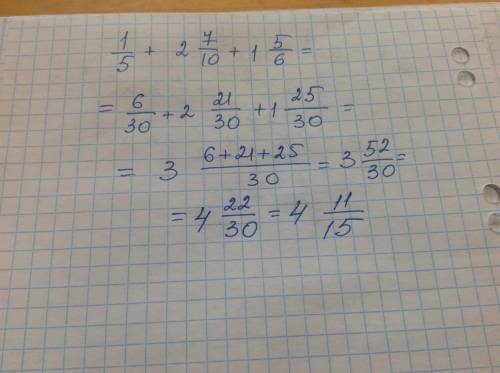 1/5 + 2 7/10 + 1 5/6 =
= 6/30 + 2 21/30 + 1 25/30 =
= 3 (6+21+25)/30 = 3 52/30 =
= 4 22/30 = 4 11/15